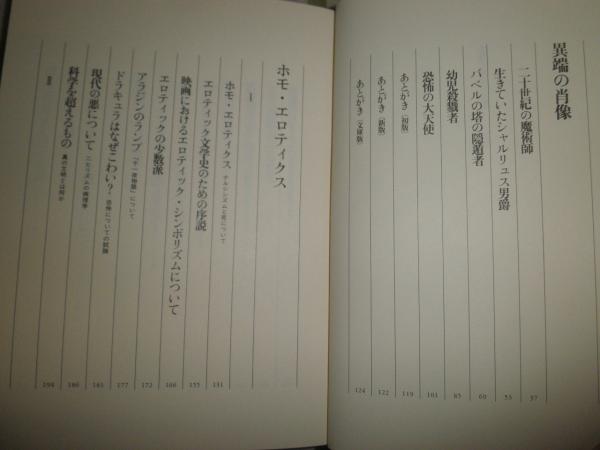 異端の肖像
二十世紀の魔術師 37
生きていたシャルリュス男爵 53
バベルの塔の隠遁者 69
幼児殺戮者 85
恐怖の大天使 101
あとがき(初版) 119
あとがき(新版) 122
あとがき(文庫版) 124
ホモ・エロティクス
I
ホモ・エロティクス ナルシシズムと死について 131
エロティック文学史のための序説 155
映画におけるエロティック・シンボリズムについて 166
エロティックの少数派
アラジンのランプ 『千一夜物語』について 172
ドラキュラはなぜこわい? 恐怖についての試論 177
現代の悪について ニヒリズムの病理学 183
科学を超えるもの 真の文明とは何か 186
198